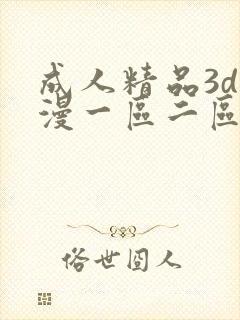 成人精品3d
漫一區二區
俗世囧人